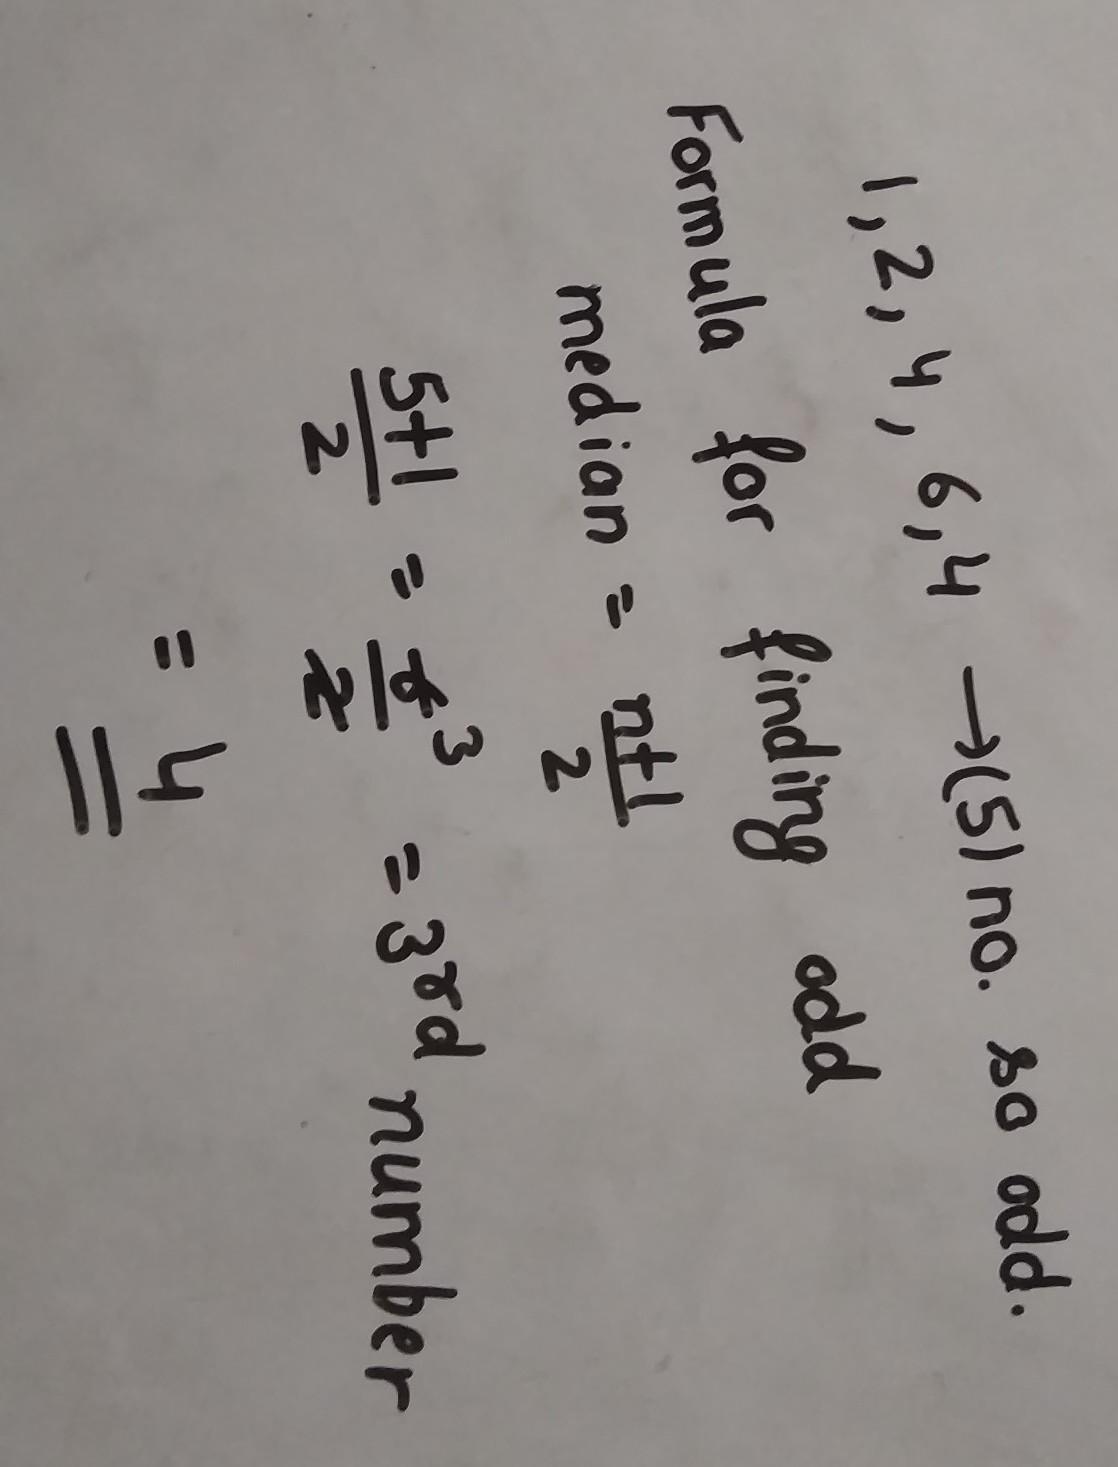 1, 2, 4, 6, 4 → (5) no. so odd.
Formula for finding odd
median = n+1/2
5+1/2 = 6/2 3 = 3rd number
= 4